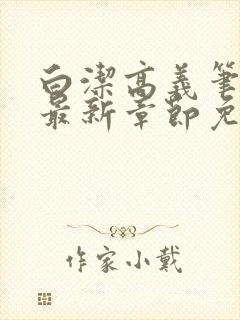 白潔高義筆
最新章節免
作家小戴